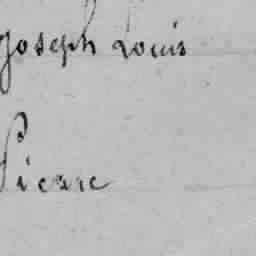 Joseph Louis
Pierre